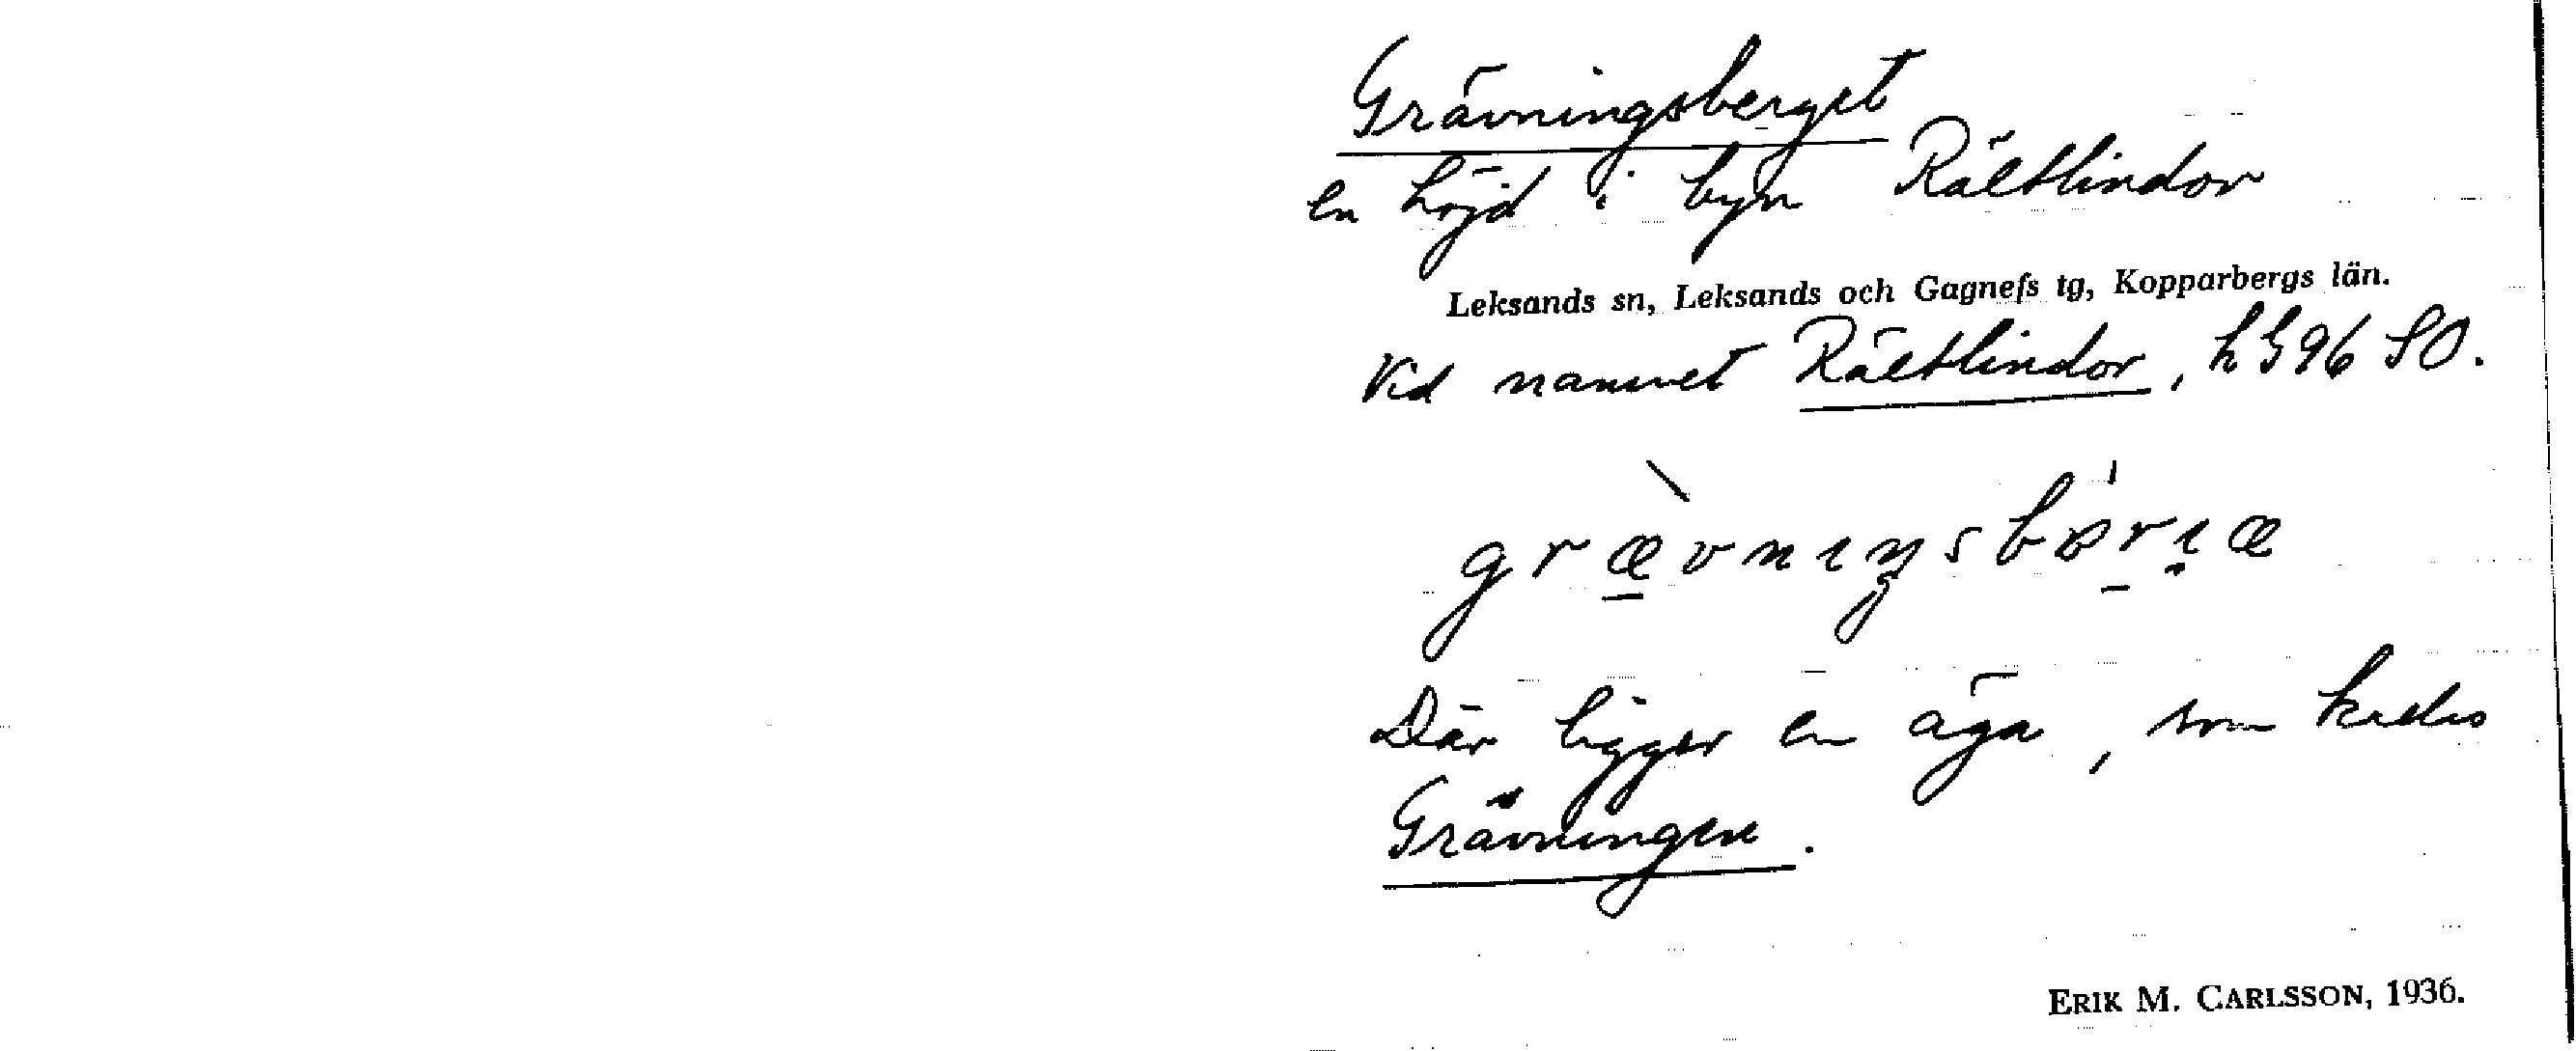 Grävningsberget
en höjd i byn Rältlindor
Leksands sn, Leksands och Gagnefs tg, Kopparbergs län.
Vid namnet Rältlindor, h G 96 SO.
Där ligger en äga, som kallas
Grävningen.
ERIK M. CARLSSON, 1936.